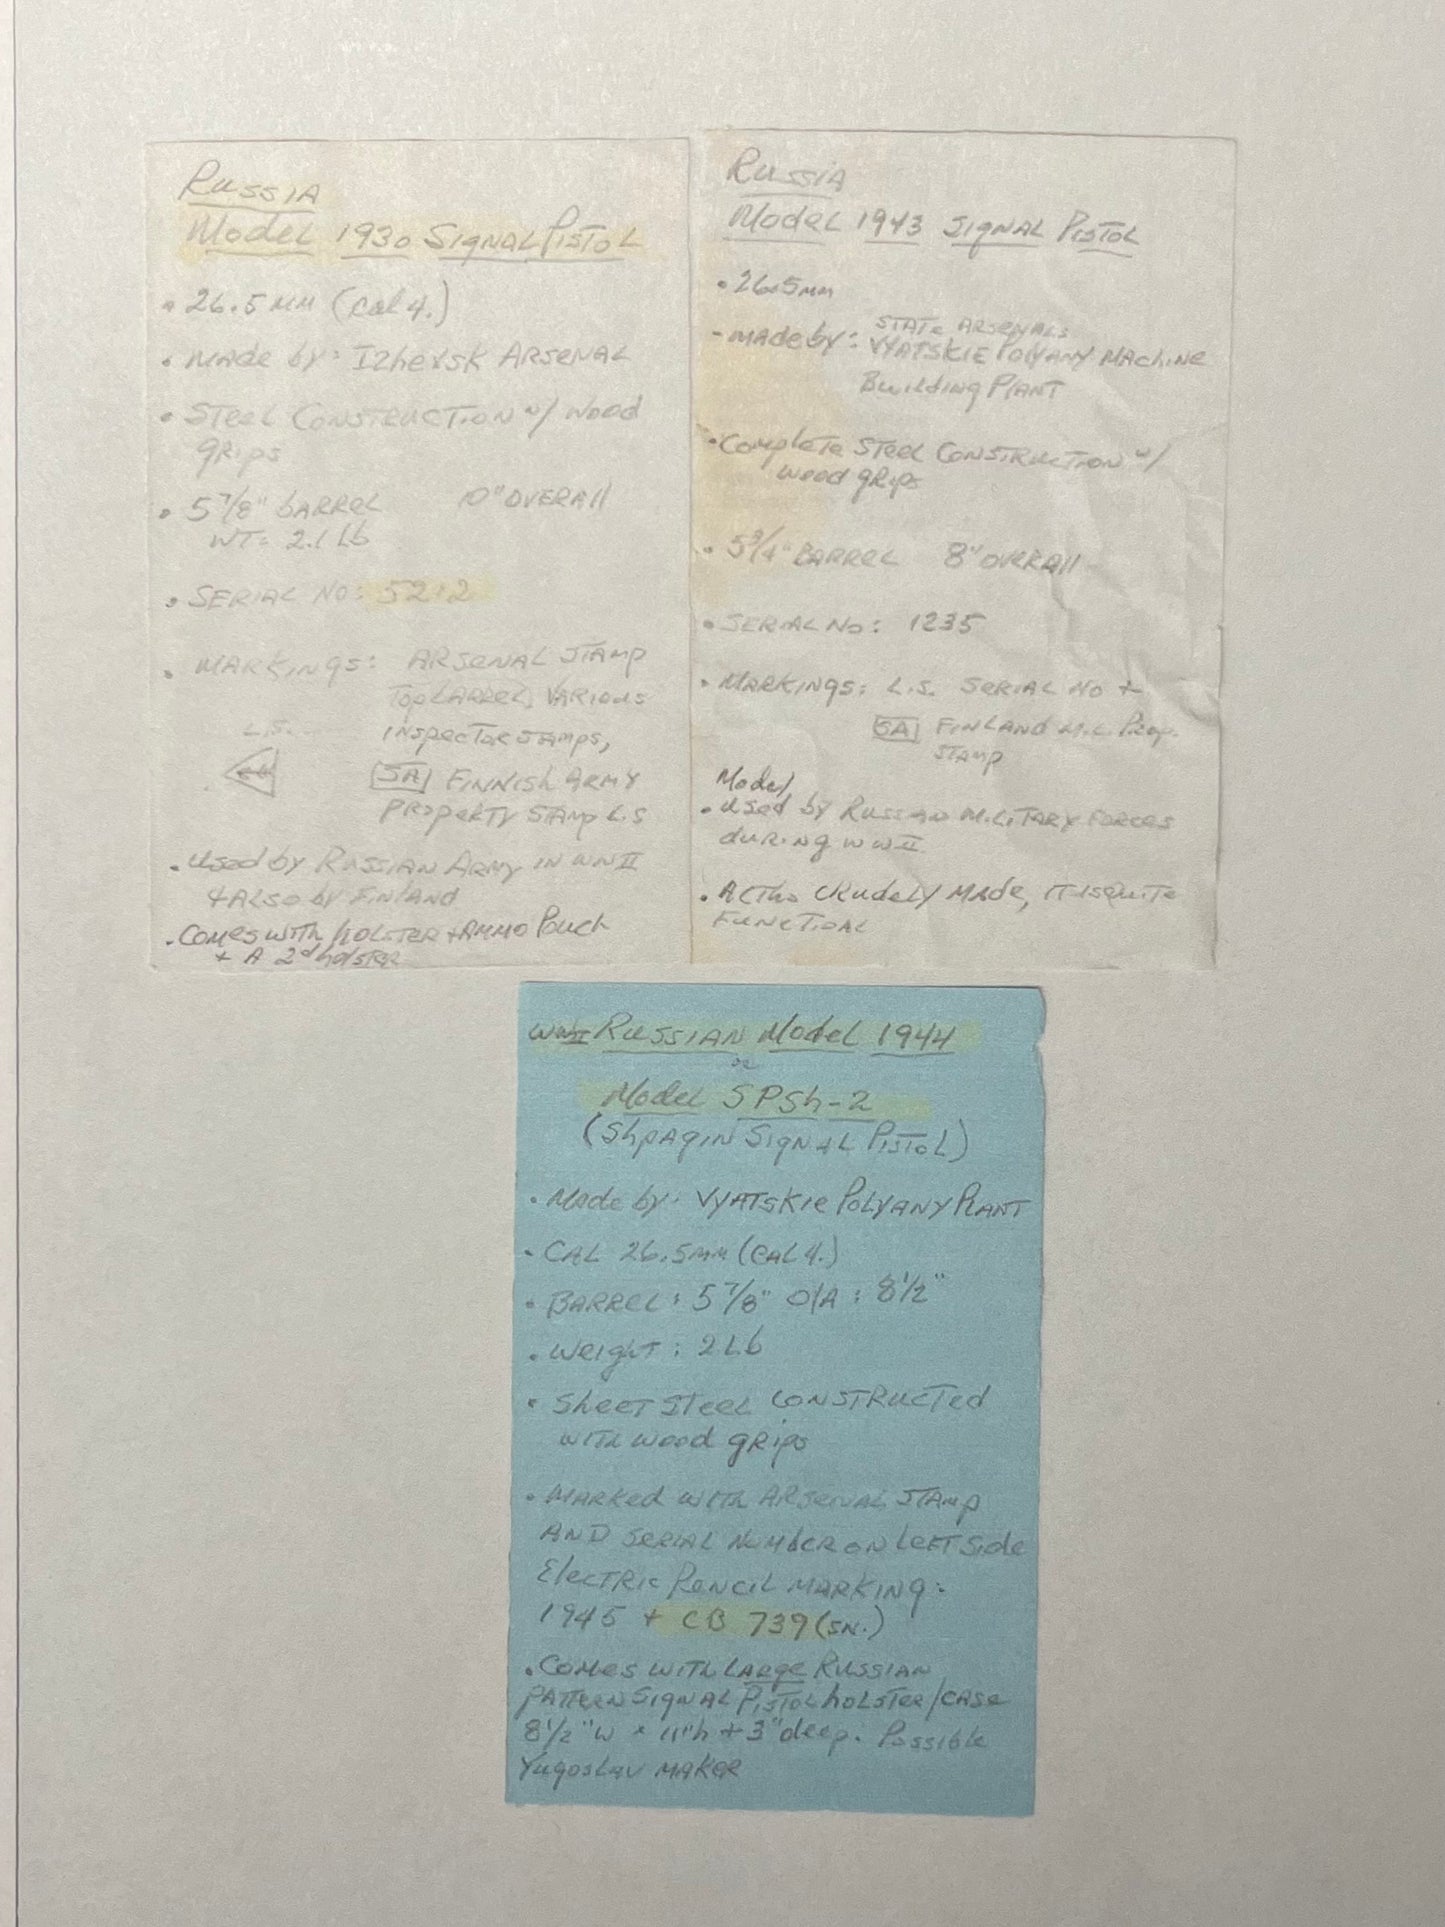 Russia
Model 1930 Signal Pistol
• 26.5 mm (Cal 4.)
• Made by: Izhevsk Arsenal
• Steel Construction w/ wood
grips
• 5 7/8" barrel 10" overall
WT= 2.1 Lb
• Serial No: 5212
• Markings: Arsenal Stamp
Top barrel, various
L.S. inspector stamps,
SA Finnish Army
Property Stamp L.S
• Used by Russian Army in WWII
+ Also by Finland
• Comes with holster + Ammo Pouch
+ A 2d holster
Russia
Model 1943 Signal Pistol
• 26.5mm
- Made by: State Arsenals
Vyatskie Polyany Machine
Building Plant
• Complete Steel Construction w/
wood grips
• 5 3/4" Barrel 8" overall
• Serial No: 1235
• Markings: L.S. Serial No +
SA Finland Mil Prop.
Stamp
Model
• used by Russian Military Forces
during WWII
• Altho crudely made, it is quite
Functioal
WWII Russian Model 1944
or
Model SPSh-2
(Shpagin Signal Pistol)
• Made by: Vyatskie Polyany Plant
• Cal 26.5mm (Cal 4.)
• Barrel: 5 7/8" O/A: 8 1/2"
• Weight: 2 Lb
• Sheet Steel constructed
with wood grips
• Marked with Arsenal Stamp
and serial number on left side
Electric Pencil marking:
1945 + CB 739 (SN.)
• Comes with large Russian
pattern signal pistol holster/case
8 1/2" w x 11" h + 3" deep. Possible
Yugoslav maker